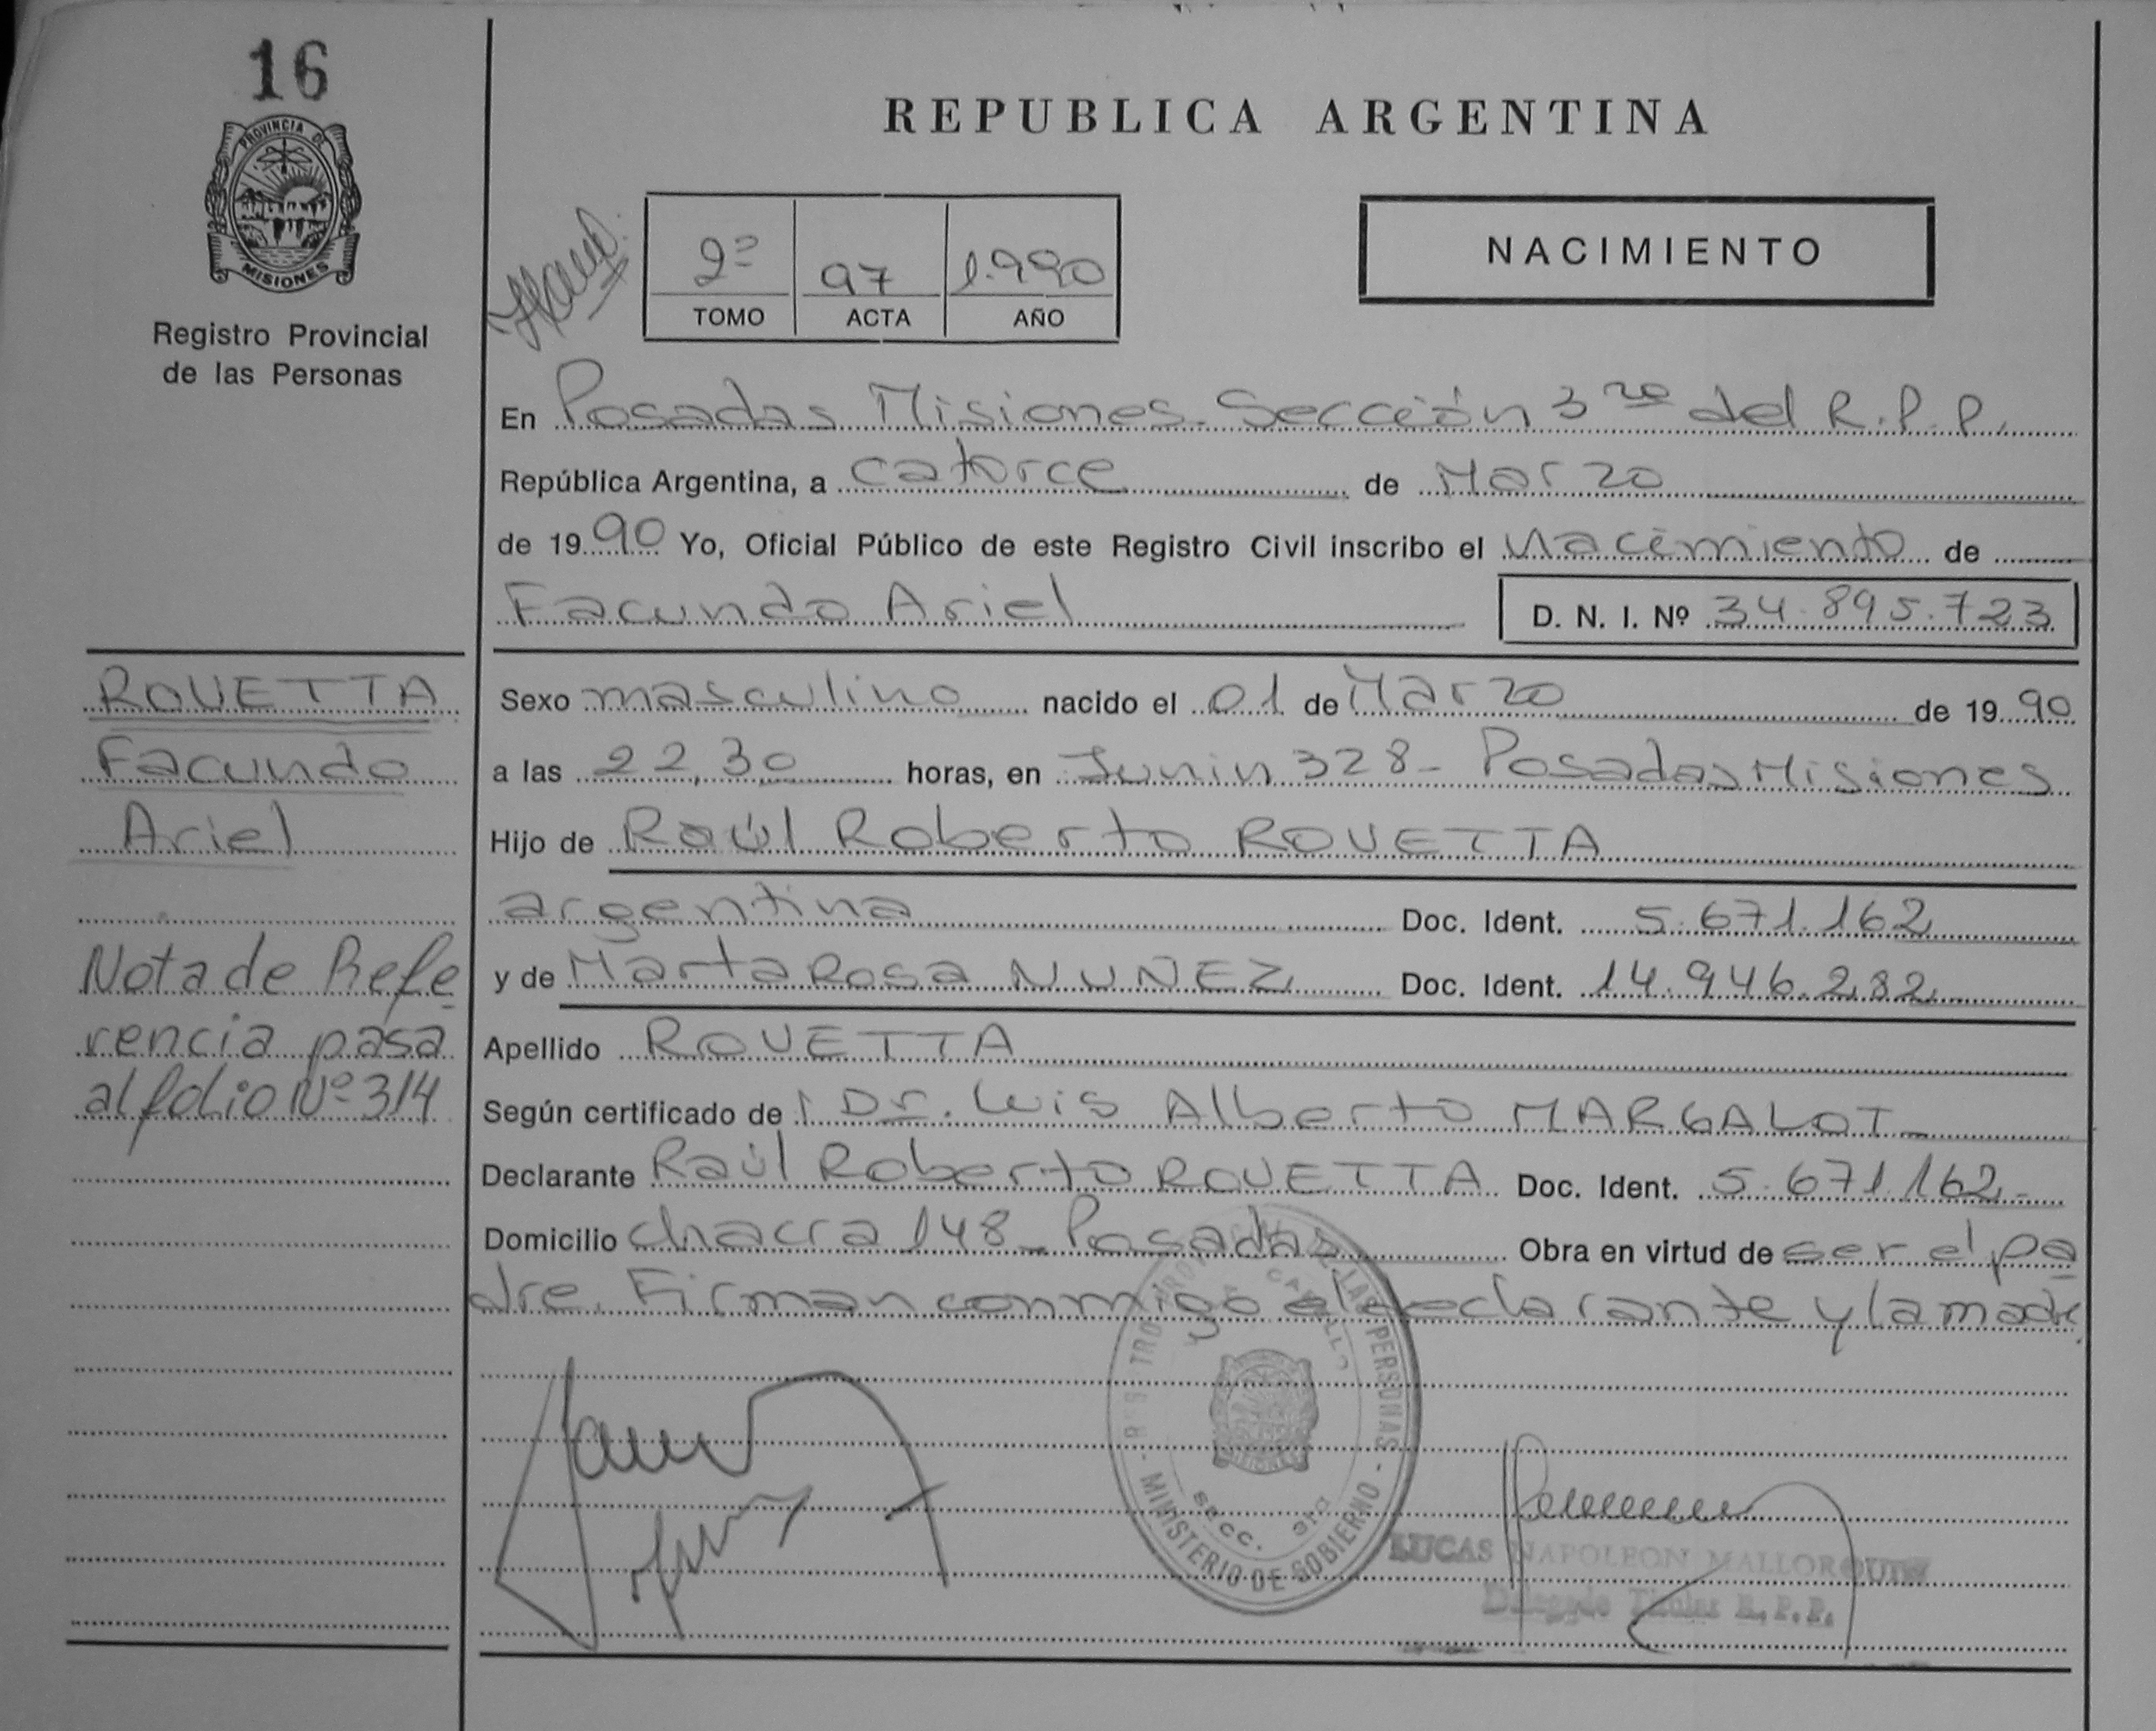 16
PROVINCIA DE
MISIONES
Registro Provincial
de las Personas
REPUBLICA ARGENTINA
2º 97 1.990
TOMO ACTA AÑO
NACIMIENTO
En Posadas Misiones. Sección 3ra del R.P.P.
República Argentina, a catorce de Marzo
de 1990 Yo, Oficial Público de este Registro Civil inscribo el Nacimiento de
Facundo Ariel D. N. I. Nº 34.895.723
ROVETTA
Facundo
Ariel
Nota de Refe
rencia pasa
al folio Nº 314
Sexo masculino nacido el 01 de Marzo de 1990
a las 22,30 horas, en Junin 328- Posadas Misiones
Hijo de Raúl Roberto ROVETTA
argentina Doc. Ident. 5.671.162
y de Marta Rosa NUÑEZ Doc. Ident. 14.946.282
Apellido ROVETTA
Según certificado de l Dr. Luis Alberto MARGALOT-
Declarante Raúl Roberto ROVETTA Doc. Ident. 5.671.162-
Domicilio chacra 148- Posadas Obra en virtud de ser el pa
dre. Firman conmigo el declarante y la madre.
LAS PERSONAS - MINISTERIO DE GOBIERNO -
SECC. 3ra
LUCAS NAPOLEON MALLORQUIN
Delegado Titular R.P.P.